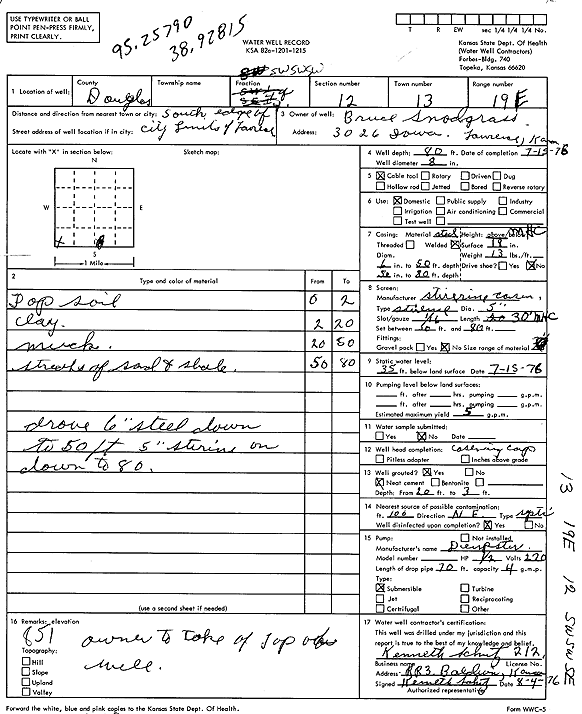 USE TYPEWRITER OR BALL
POINT PEN-PRESS FIRMLY,
PRINT CLEARLY.
95.25790
38.92815
WATER WELL RECORD
KSA 82a-1201-1215
T R EW sec 1/4 1/4 1/4 No.
Kansas State Dept. Of Health
(Water Well Contractors)
Forbes-Bldg. 740
Topeka, Kansas 66620
1 Location of well: County Douglas Township name Fraction SW SW SW Section number 12 Town number 13 Range number 19 E
Distance and direction from nearest town or city: South edge of
Street address of well location if in city: City limits of
3 Owner of well: Bruce Snodgrass
Address: 3026 Iowa.
Locate with "X" in section below:
Sketch map:
N
W E
S
1 Mile
4 Well depth: 80 ft. Date of completion 7-15-76
Well diameter 8 in.
5 Cable tool Rotary Driven Dug
Hollow rod Jetted Bored Reverse rotary
6 Use: Domestic Public supply Industry
Irrigation Air conditioning Commercial
Test well
7 Casing: Material steel Height: above/below
Threaded Welded Surface 18 in.
Diam. Weight 13 lbs./ft.
6 in. to 50 ft. depth Drive shoe? Yes No
in. to 80 ft. depth
2 Type and color of material From To
Top soil 0 2
clay. 2 20
muck. 20 50
streaks of sand & shale. 50 80
drove 6" steel down
to 50 ft 5" on
down to 80.
8 Screen:
Manufacturer
Type Dia. 5"
Slot/gauze 1/16 Length 30' MHC
Set between 50 ft. and 80 ft.
Fittings:
Gravel pack Yes No Size range of material
9 Static water level:
35 ft. below land surface Date 7-15-76
10 Pumping level below land surfaces:
ft. after hrs. pumping g.p.m.
ft. after hrs. pumping g.p.m.
Estimated maximum yield 5 g.p.m.
11 Water sample submitted:
Yes No Date
12 Well head completion:
Pitless adapter Inches above grade
13 Well grouted? Yes No
Neat cement Bentonite
Depth: From 20 ft. to 3 ft.
14 Nearest source of possible contamination:
ft. 100 Direction N E. Type septi
Well disinfected upon completion? Yes No
15 Pump: Not installed
Manufacturer's name Dempster
Model number HP 1/2 Volts 220
Length of drop pipe 70 ft. capacity 4 g.m.p.
Type:
Submersible Turbine
Jet Reciprocating
Certrifugal Other
(use a second sheet if needed)
16 Remarks: elevation
851
owner to take of top
well.
Topography:
Hill
Slope
Upland
Valley
17 Water well contractor's certification:
This well was drilled under my jurisdiction and this
report is true to the best of my knowledge and belief.
Kenneth 212.
Business name License No.
Address RR3. Baldwin,
Signed Kenneth Date 8-4-76
Authorized representative
Forward the white, blue and pink copies to the Kansas State Dept. Of Health.
Form WWC-5
13 19E 12 SW SW SE